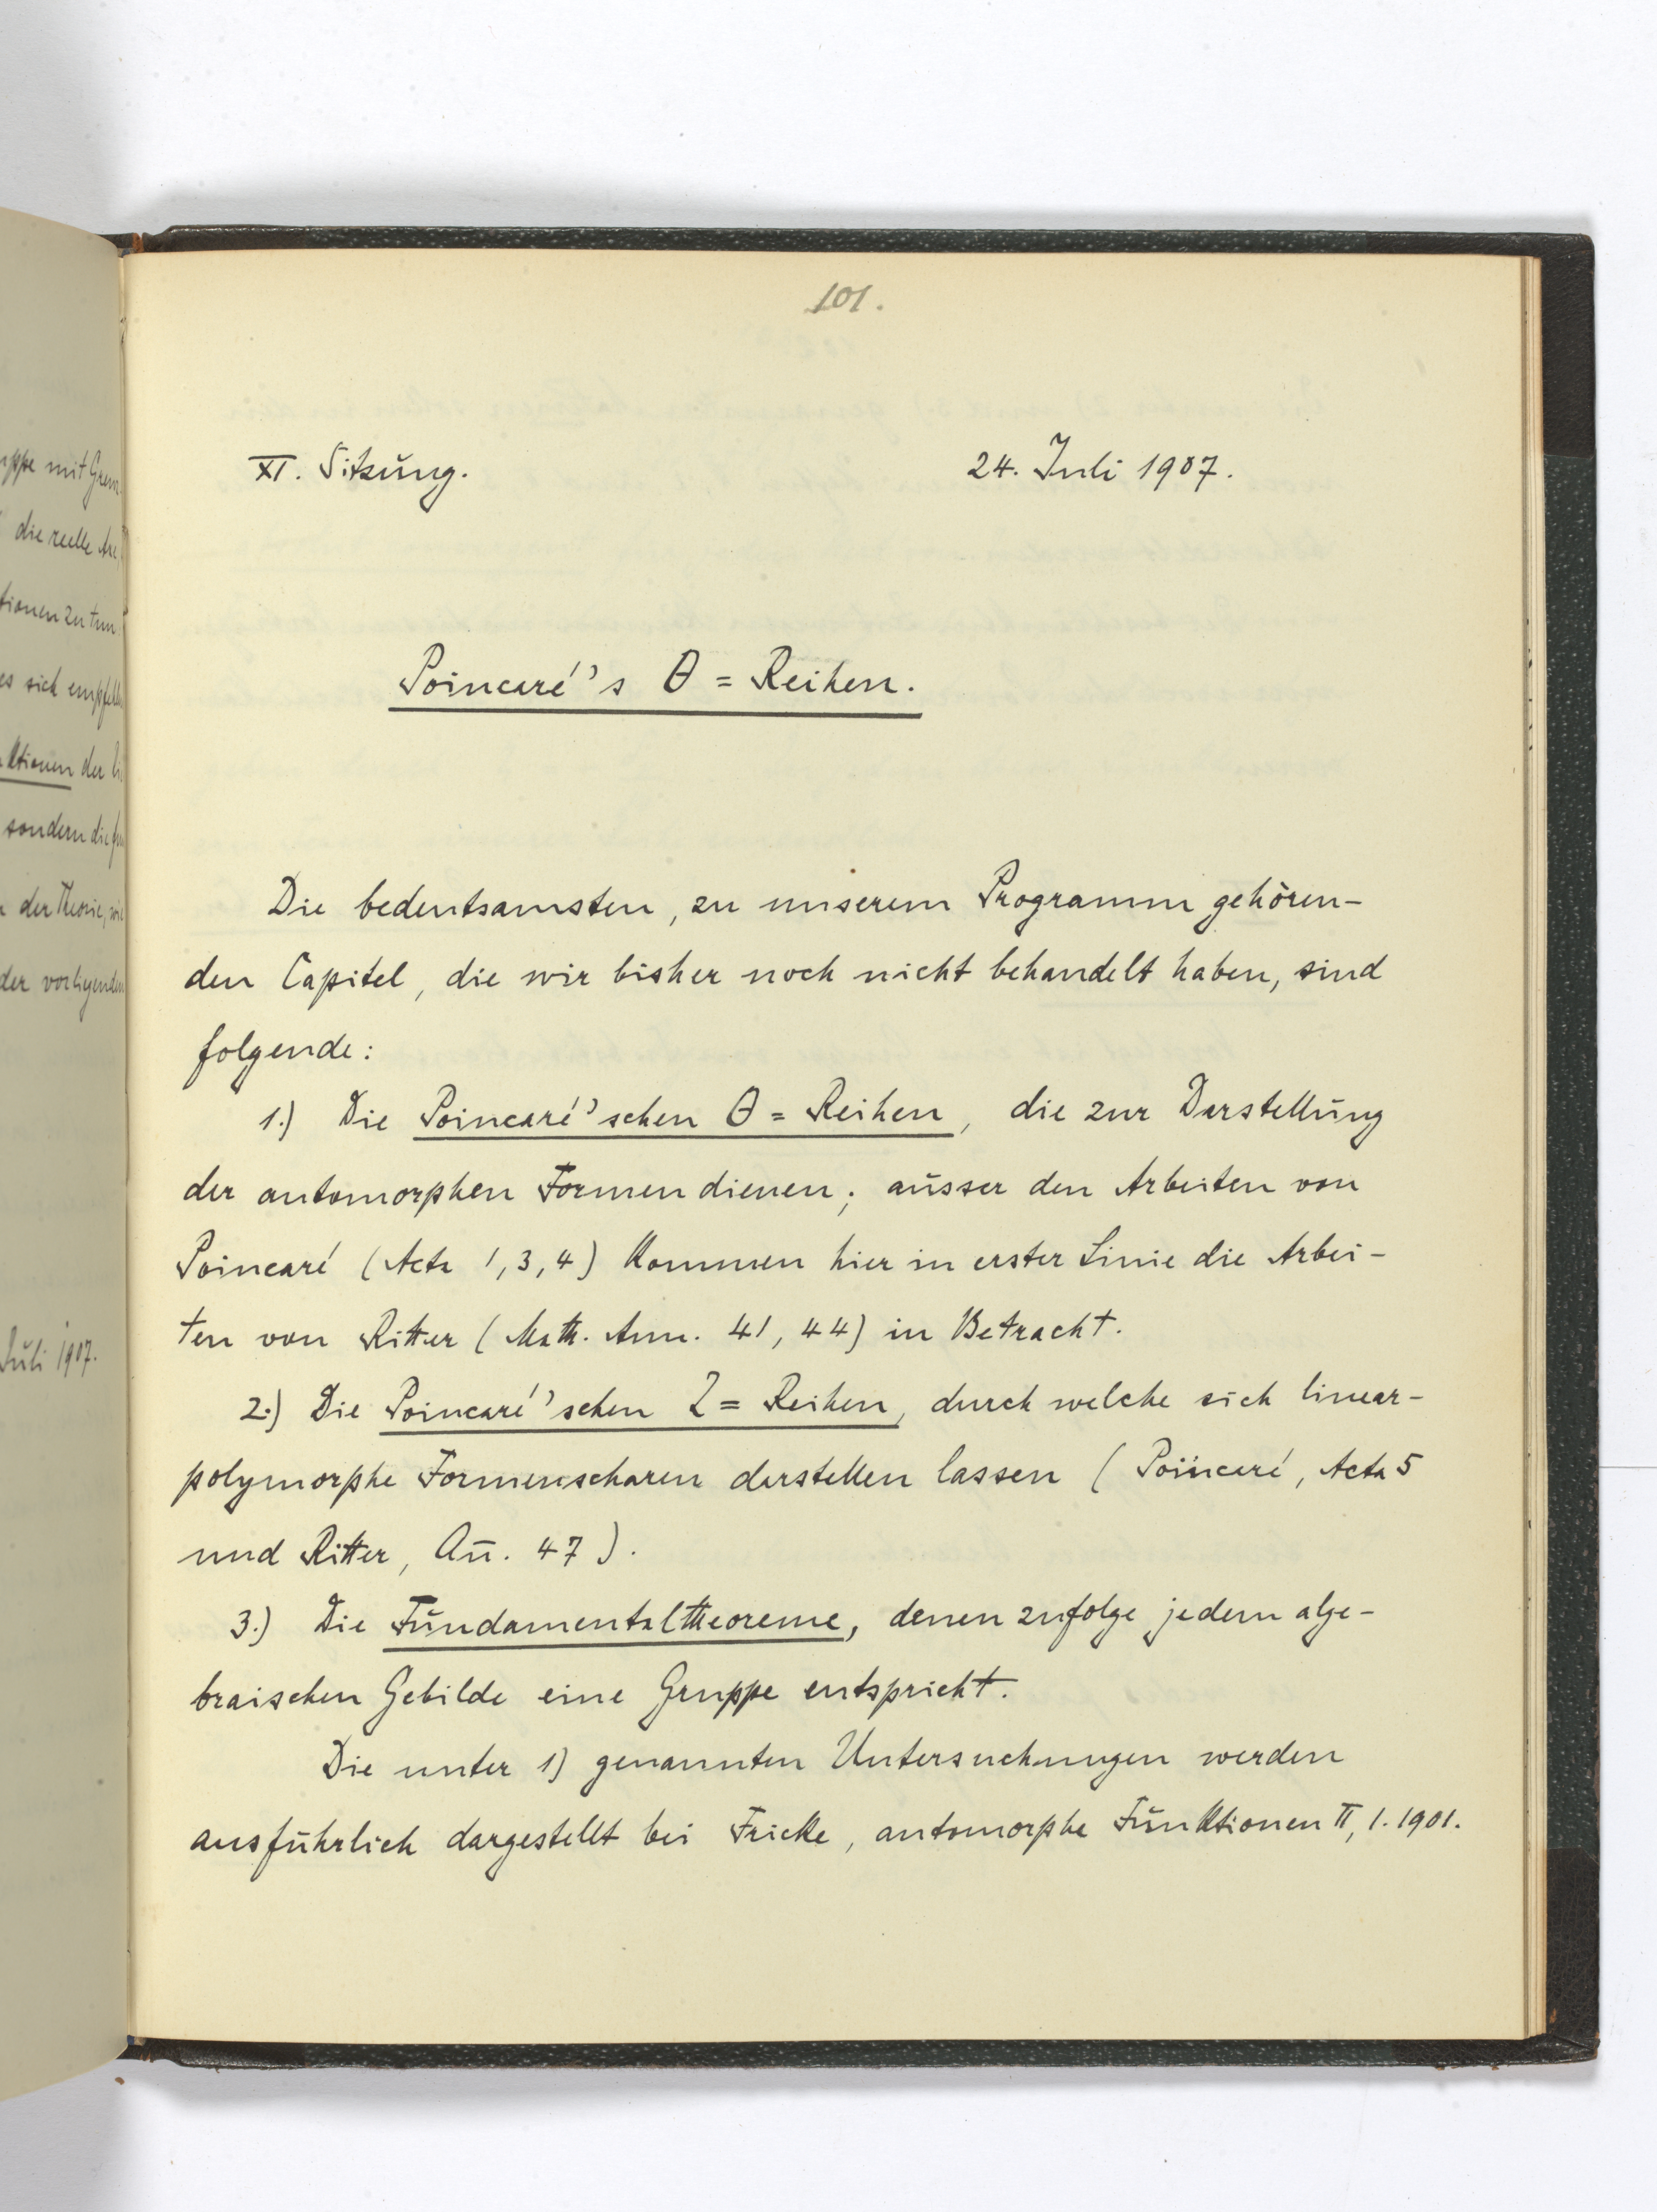 101.
XI. Sitzung. 24. Juli 1907.
Poincaré's θ = Reihen.
Die bedeutsamsten, zu unserem Programm gehören-
den Capitel, die wir bisher noch nicht behandelt haben, sind
folgende:
1.) Die Poincaré'schen θ = Reihen, die zur Darstellung
der automorphen Formen dienen; ausser den Arbeiten von
Poincaré (Acta 1, 3, 4) kommen hier in erster Linie die Arbei-
ten von Ritter (Math. Ann. 41, 44) in Betracht.
2.) Die Poincaré'schen Z = Reihen, durch welche sich linear-
polymorphe Formenscharen darstellen lassen (Poincaré, Acta 5
und Ritter, An̄. 47).
3.) Die Fundamentaltheoreme, denen zufolge jedem alge-
braischen Gebilde eine Gruppe entspricht.
Die unter 1) genannten Untersuchungen werden
ausführlich dargestellt bei Fricke, automorphe Funktionen II, 1. 1901.
uppe mit Gren
die reelle Axe,
tionen zu tun.
es sich empfehle
ktionen der li
sondern die
der Theorie, wie
der vorliegenden
Juli 1907.